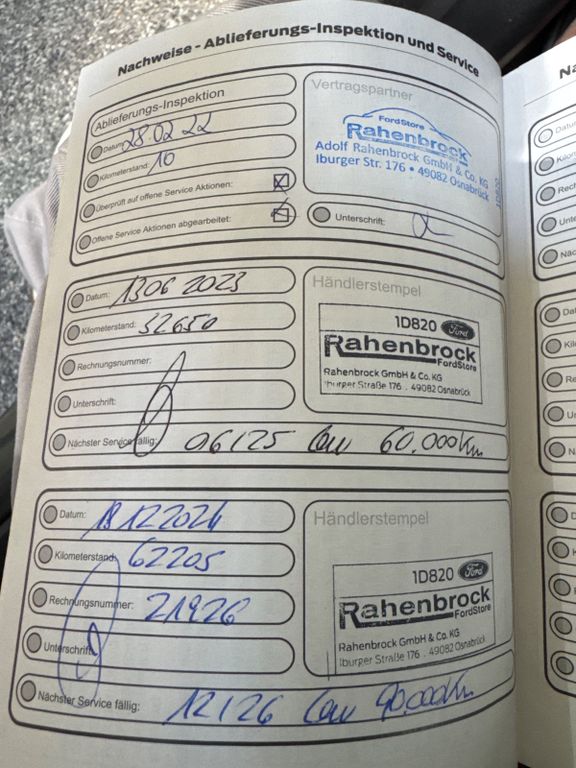 Nachweise - Ablieferungs-Inspektion und Service
Ablieferungs-Inspektion
Datum: 28.02 22
Kilometerstand: 10
Überprüft auf offene Service Aktionen:
Offene Service Aktionen abgearbeitet:
Vertragspartner
FordStore
Rahenbrock
Adolf Rahenbrock GmbH & Co. KG
Iburger Str. 176 • 49082 Osnabrück
1D820
Unterschrift:
Datum: 13 06 2023
Kilometerstand: 32650
Rechnungsnummer:
Unterschrift:
Nächster Service fällig: 06/25 60.000Km
Händlerstempel
1D820 Ford
Rahenbrock
FordStore
Rahenbrock GmbH & Co. KG
Iburger Straße 176 . 49082 Osnabrück
Datum: 18 12 2024
Kilometerstand: 62205
Rechnungsnummer: 21926
Unterschrift:
Nächster Service fällig: 12/26 90.000Km
Händlerstempel
1D820 Ford
Rahenbrock
FordStore
Rahenbrock GmbH & Co. KG
Iburger Straße 176 . 49082 Osnabrück